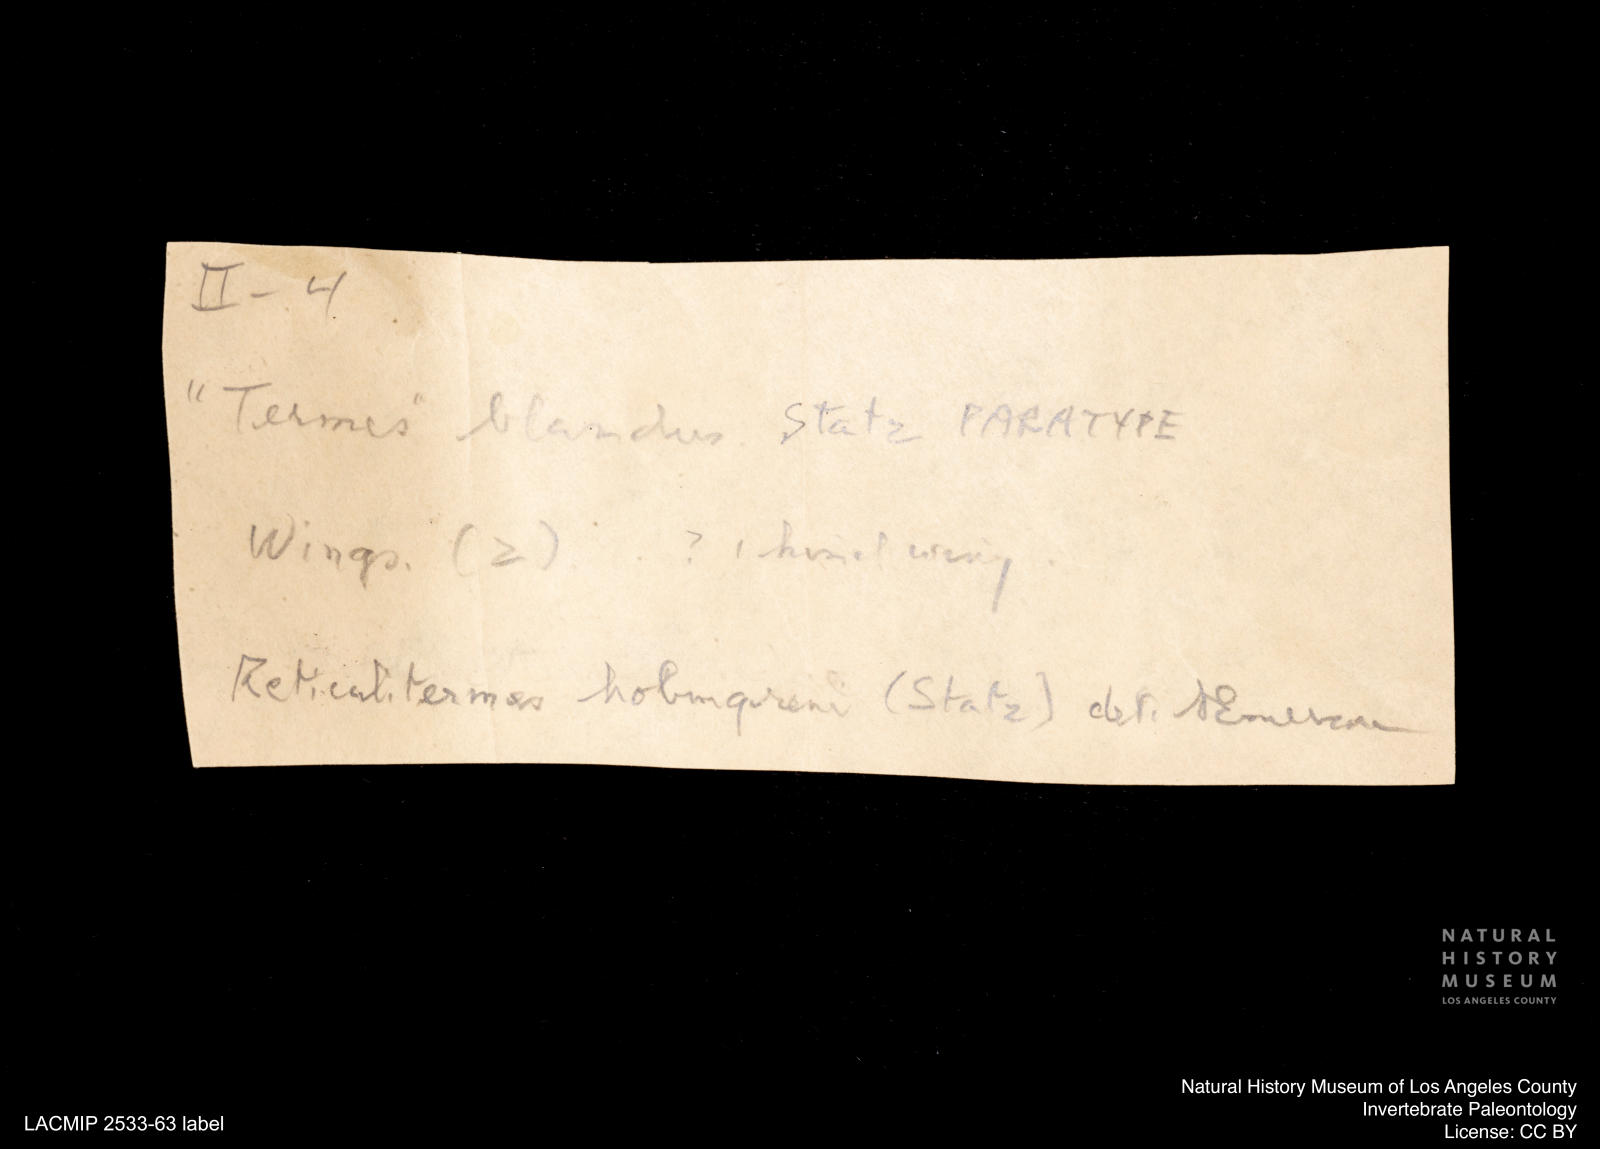 II - 4
"Termes" blandus Statz PARATYPE
Wings. (2) . . ? 1 hind wing.
Reticulitermes holmgreni (Statz) det. AEmerson
NATURAL
HISTORY
MUSEUM
LOS ANGELES COUNTY
Natural History Museum of Los Angeles County
Invertebrate Paleontology
License: CC BY
LACMIP 2533-63 label